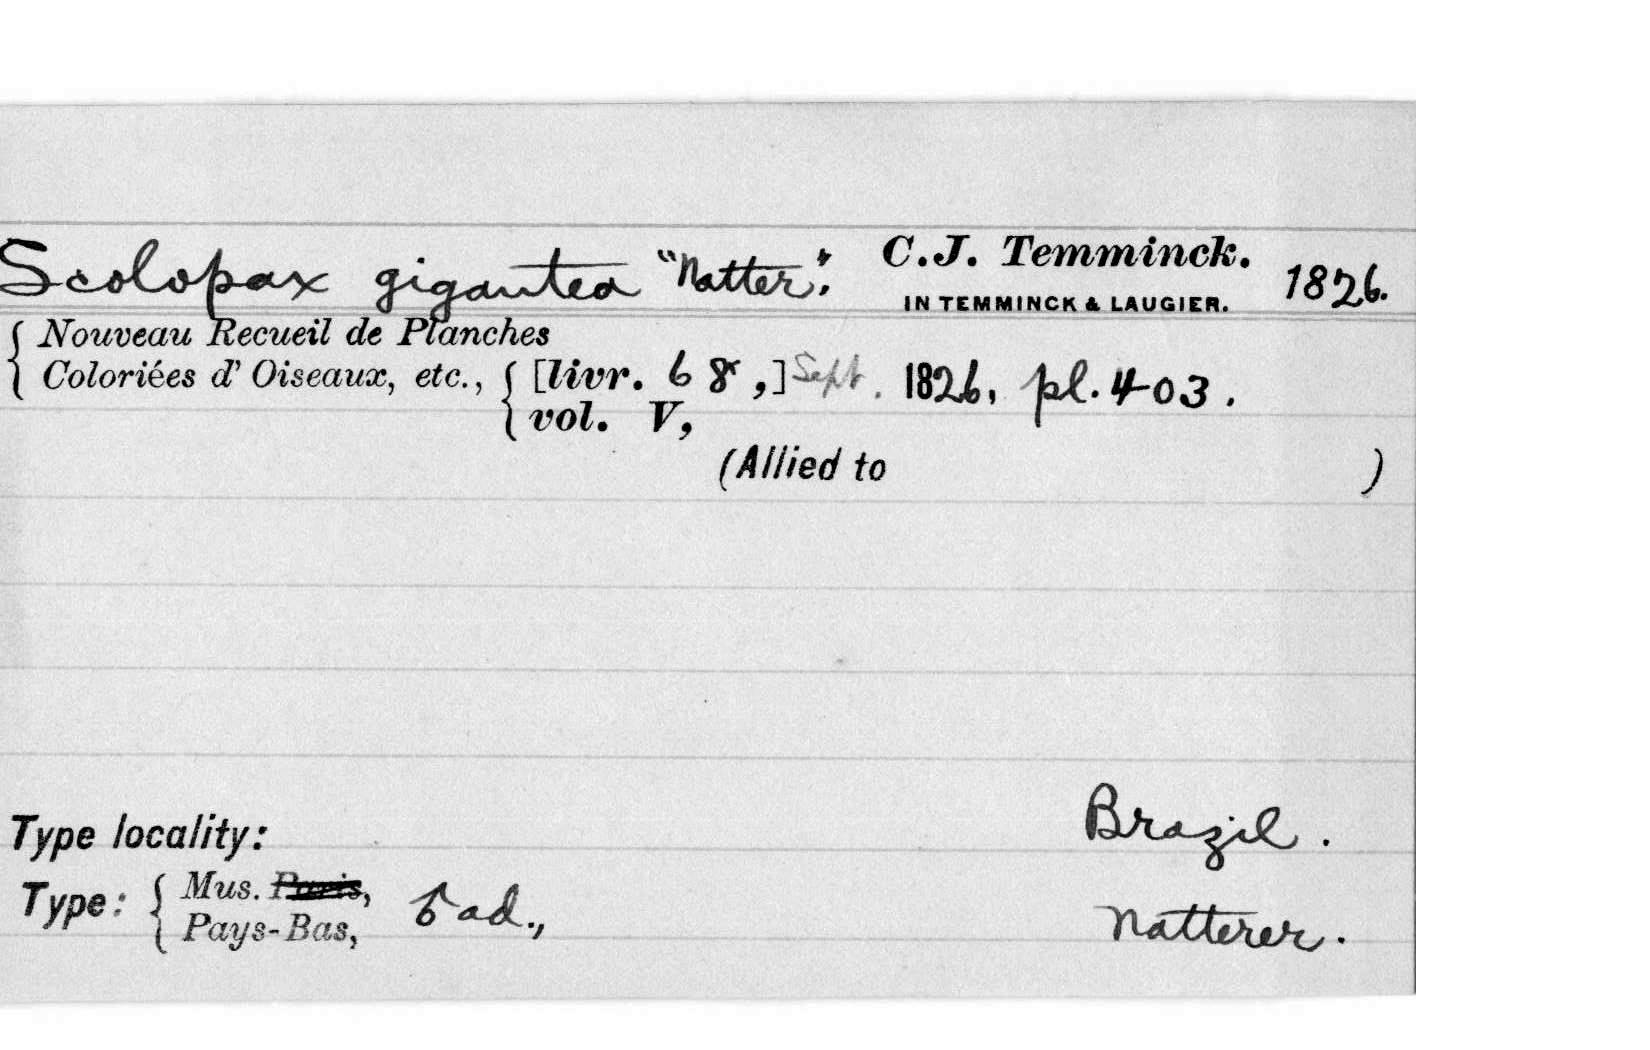 Scolopax gigantea "Natter". C.J. Temminck. 1826.
IN TEMMINCK & LAUGIER.
Nouveau Recueil de Planches
Coloriées d' Oiseaux, etc., [livr. 68,] Sept. 1826, pl. 403.
vol. V,
(Allied to )
Type locality: Brazil.
Type: Mus. Paris, ad., Natterer.
Pays-Bas,